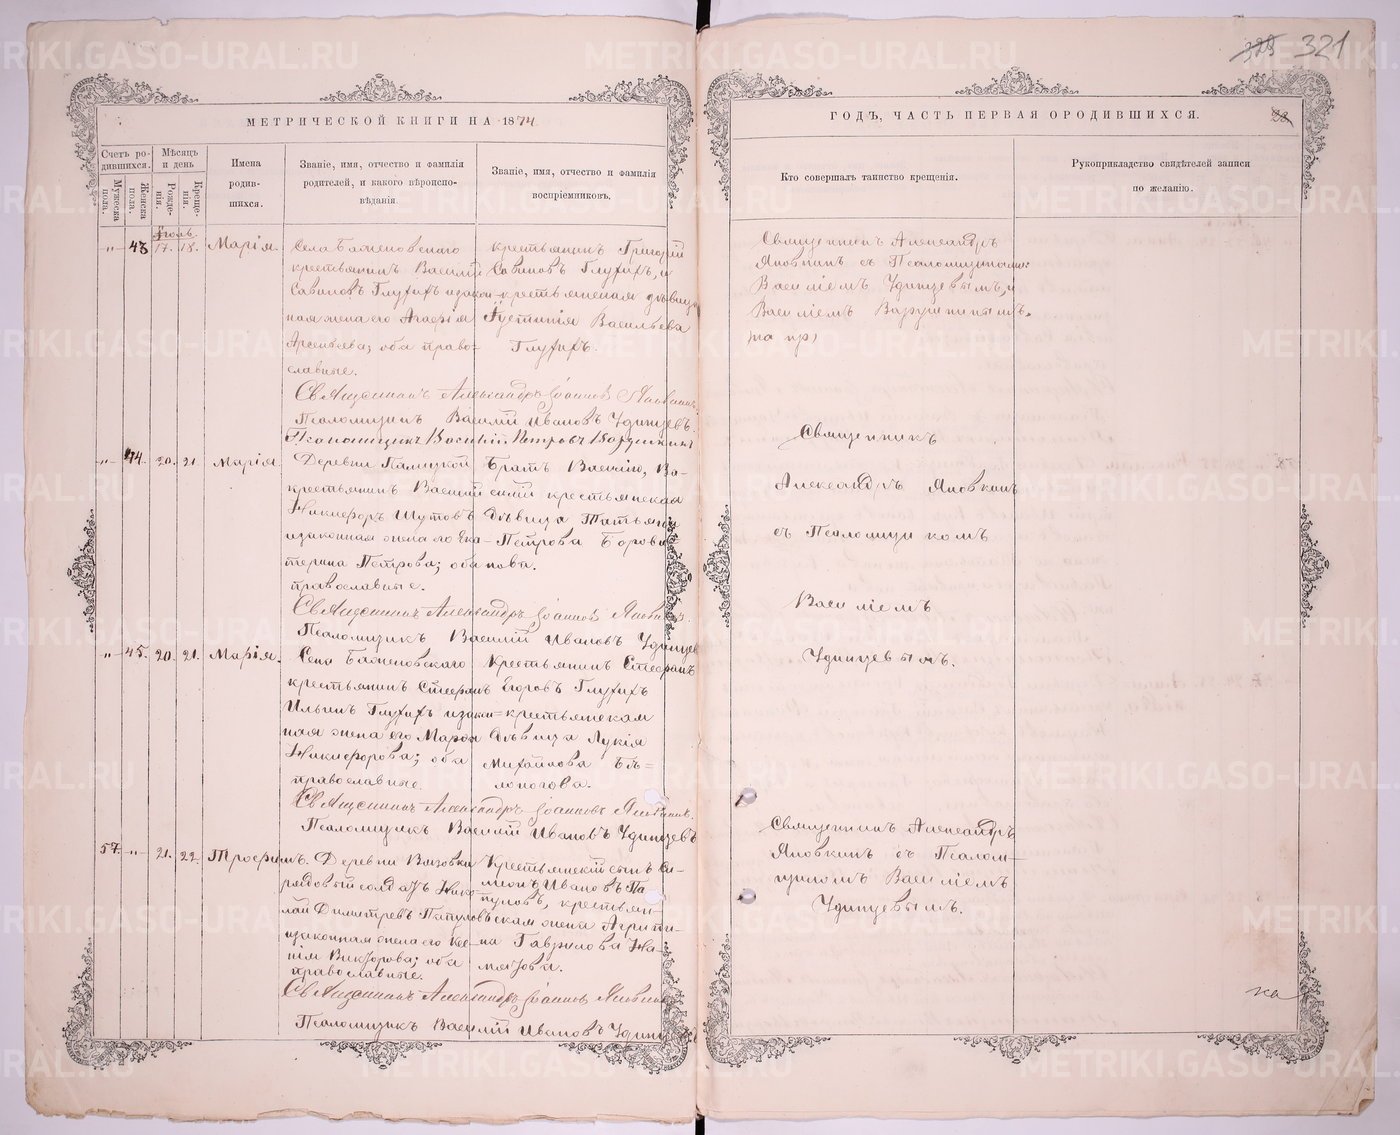 321
МЕТРИЧЕСКОЙ КНИГИ НА 1874
ГОДЪ, ЧАСТЬ ПЕРВАЯ О РОДИВШИХСЯ.
Счетъ родившихся.
Мужеска пола.
Женска пола.
Мѣсяцъ и день
Рожденія.
Крещенія.
Имена родившихся.
Званіе, имя, отчество и фамилія родителей, и какого вѣроисповѣданія.
Званіе, имя, отчество и фамилія воспріемниковъ.
Кто совершалъ таинство крещенія.
Рукоприкладство свидѣтелей записи по желанію.
Іюль.
„ 43 17. 18. Марія.
Села Баженовскаго
крестьянинъ Василій
Савиновъ Глухихъ и закон-
ная жена его
Арсеньева; оба право-
славные.
крестьянинъ Григорій
Савиновъ Глухихъ, и
крестьянская дѣвица
Іустинія Васильева
Глухихъ.
Священникъ Александръ
Яновкинъ съ Псаломщиками:
Василіемъ Удинцевымъ, и
Василіемъ Варушкинымъ.
Священникъ Александръ Іоанновъ Яновкинъ.
Псаломщикъ Василій Ивановъ Удинцевъ
Псаломщикъ Василій Петровъ Варушкинъ
„ 44. 20. 21. Марія.
Деревни
крестьянинъ Василій
Никифоръ Шутовъ
и законная жена его Ека-
терина Петрова; оба
православные.
Братъ Василію, Ва-
силій крестьянская
дѣвица Татьяна
Петрова Борови-
кова.
Священникъ
Александръ Яновкинъ
съ Псаломщикомъ
Василіемъ
Удинцевымъ.
Священникъ Александръ Іоанновъ Яновкинъ.
Псаломщикъ Василій Ивановъ Удинцевъ
„ 45. 20. 21. Марія.
Села Баженовскаго
крестьянинъ Стефанъ
Ильинъ Глухихъ и закон-
ная жена его Марфа
Никифорова; оба
православные.
Крестьянинъ Стефанъ
Егоровъ Глухихъ
крестьянская
дѣвица Лукія
Михайлова Бѣ-
лоногова.
Священникъ Александръ Іоанновъ Яновкинъ.
Псаломщикъ Василій Ивановъ Удинцевъ
57. „ 21. 22. Трофимъ.
Деревни Вязовки
рядовый солдатъ Нико-
лай Димитріевъ Папуловъ
и законная жена его Ксе-
нія Викторова; оба
православные.
Крестьянскій сынъ Си-
меонъ Ивановъ Па-
пуловъ, крестьян-
ская жена Агрипи-
на Гаврилова
Священникъ Александръ
Яновкинъ съ Псалом-
щикомъ Василіемъ
Удинцевымъ.
Священникъ Александръ Іоанновъ Яновкинъ
Псаломщикъ Василій Ивановъ Удинцевъ
METRIKI.GASO-URAL.RU